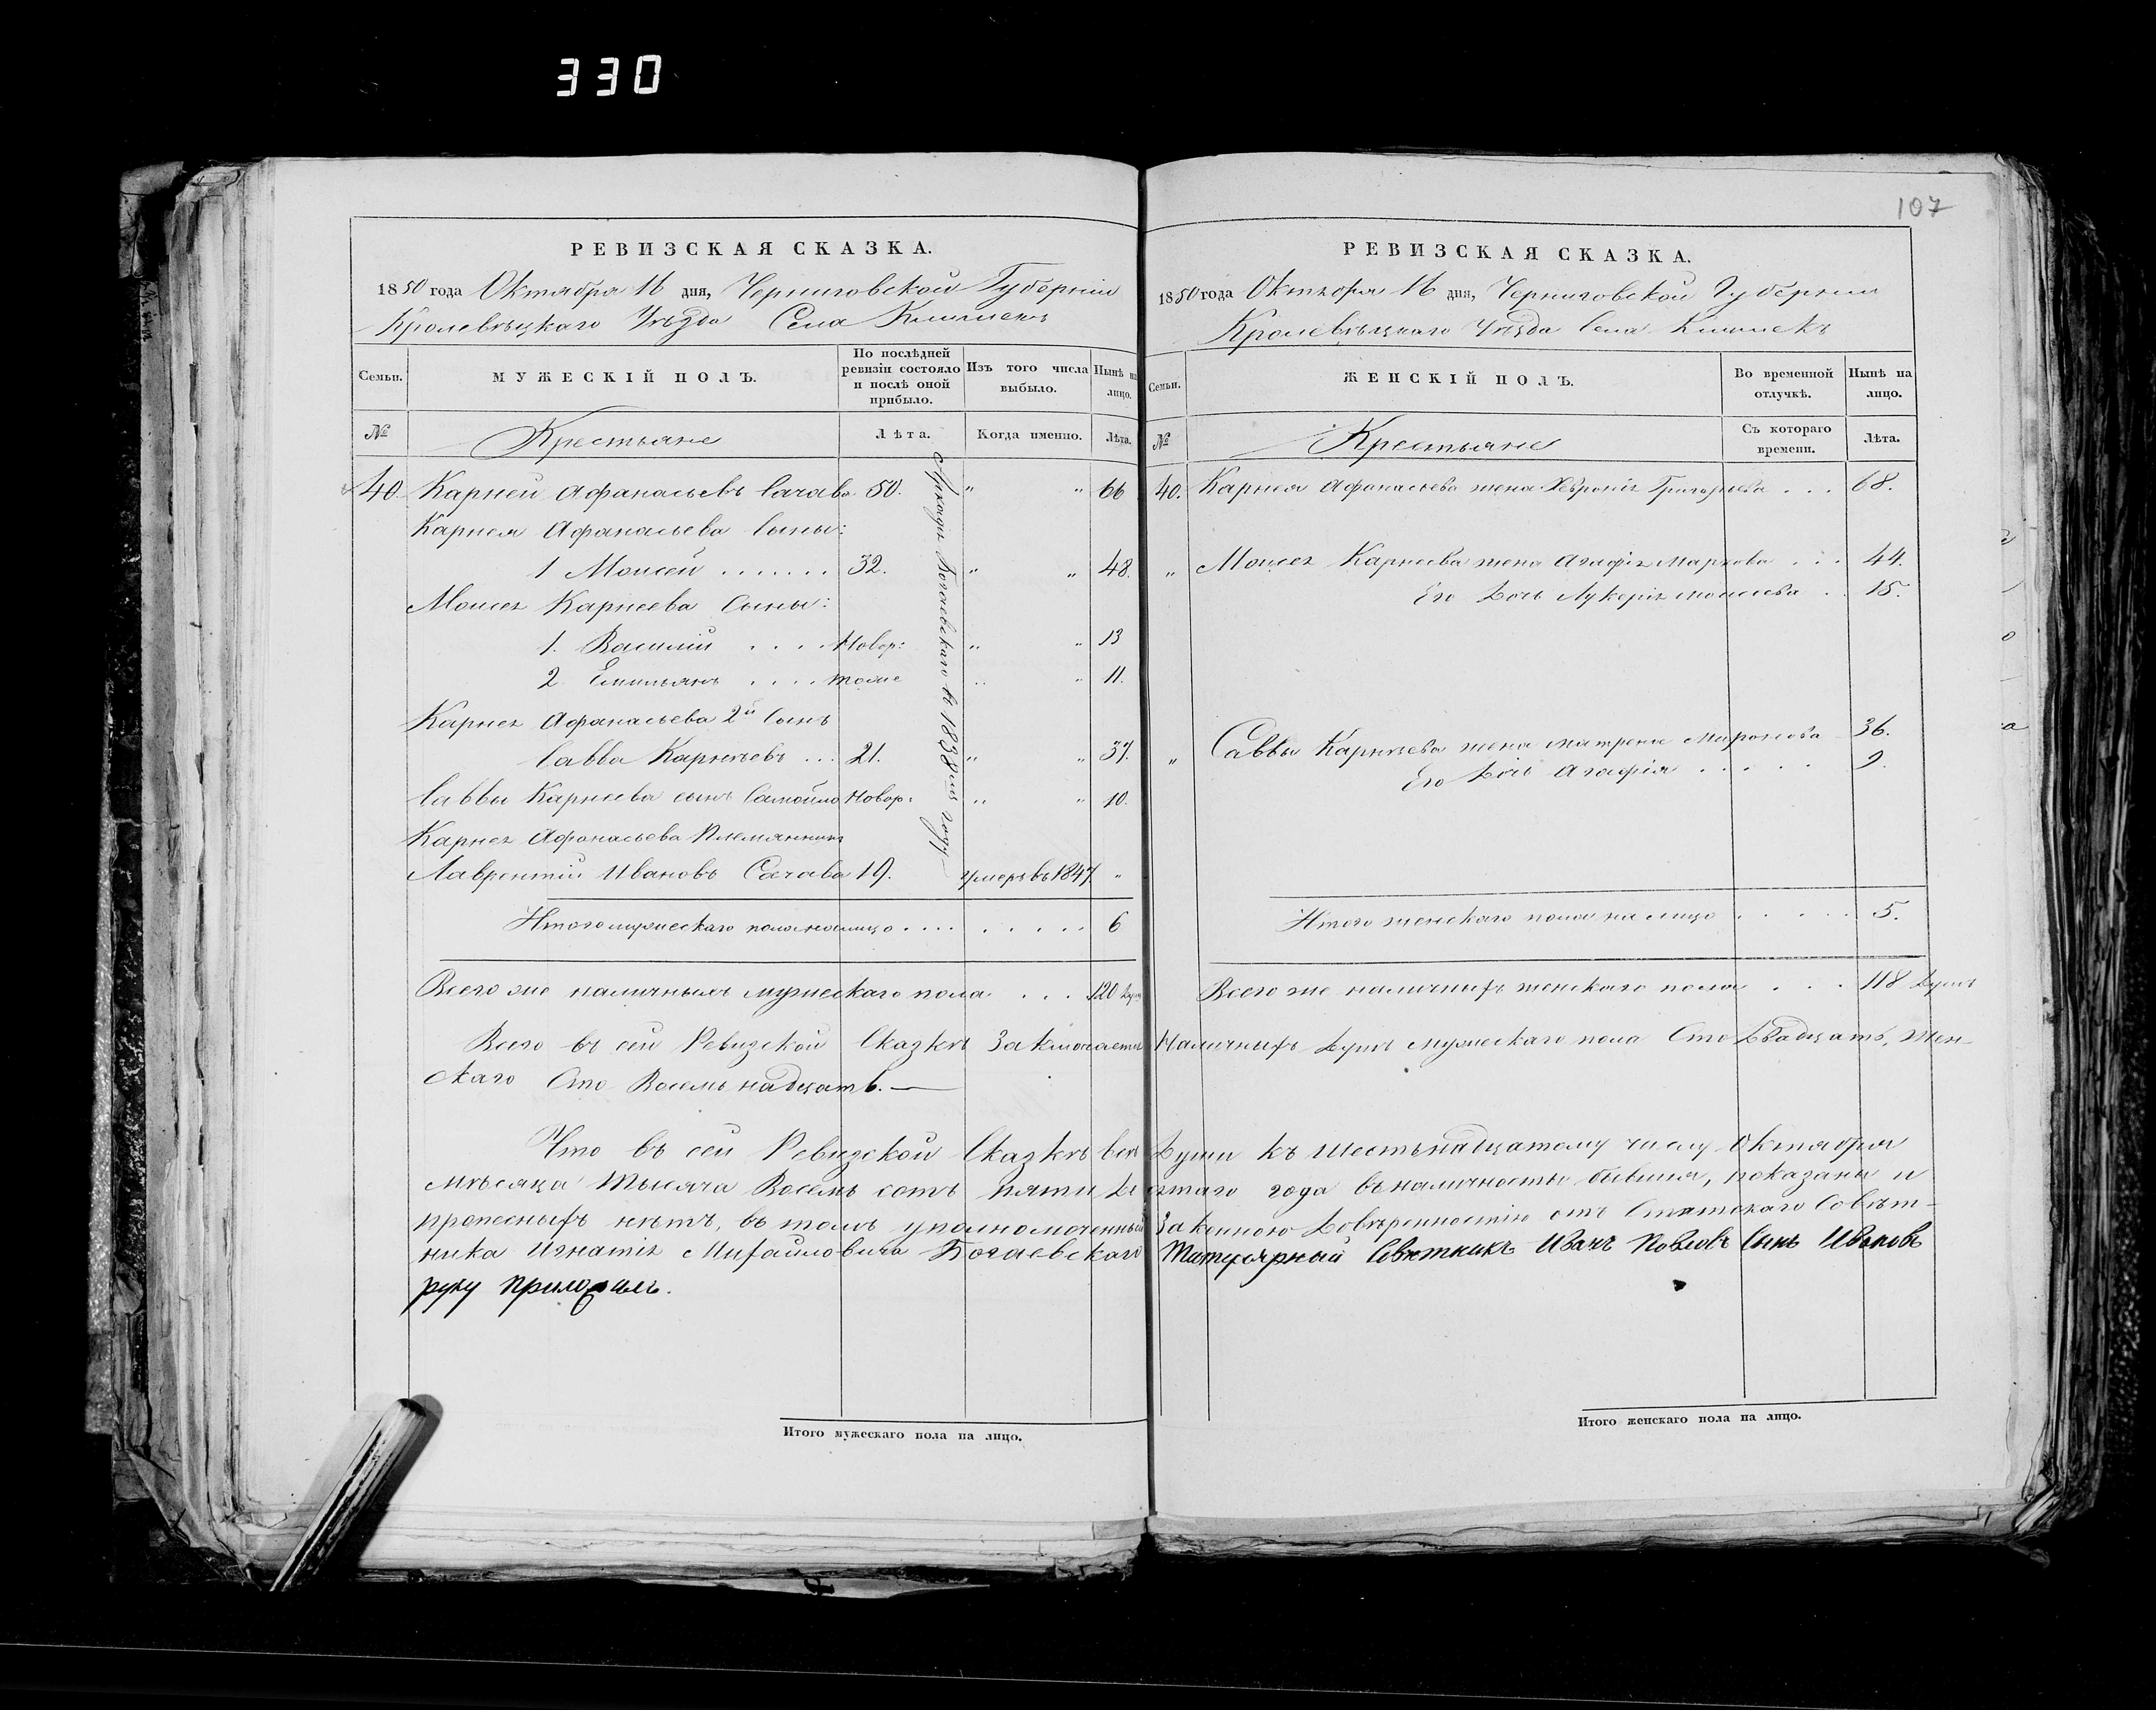 330
107
РЕВИЗСКАЯ СКАЗКА.
1850 года Октября 16 дня, Черниговской Губерніи
Кролевѣцкаго Уѣзда Села
Семьи.
МУЖЕСКІЙ ПОЛЪ.
По послѣдней ревизіи состояло и послѣ оной прибыло.
Изъ того числа выбыло.
Нынѣ на лицо.
№
Крестьяне
Лѣта.
Когда именно.
Лѣта.
40. Карней Афанасьевъ Сачава 50. " " 66
Карнея Афанасьева Сыны:
1 Моисей . . . . . . . 32. " " 48.
Моисея Карнеева Сыны:
1. Василій . . . . Новор: " " 13
2 Емильянъ . . . . тоже " " 11.
Карнея Афанасьева 2й Сынъ
Савва Карнѣевъ . . . 21. " " 37.
Саввы Карнеева сынъ Самойло Новор: " " 10.
Карнея Афанасьева Племянникъ
Лаврентій Ивановъ Сачава 19. умеръ въ 1847 "
Богаевскаго въ 1838мъ году
Итого мужескаго пола на лицо . . . . . . . . . 6
Всего же наличныхъ мужескаго пола . . . 120 душ
РЕВИЗСКАЯ СКАЗКА.
1850 года Октября 16 дня, Черниговской Губерніи
Кролевѣцкаго Уѣзда Села
Семьи.
ЖЕНСКІЙ ПОЛЪ.
Во временной отлучкѣ.
Нынѣ на лицо.
№
Крестьяне
Съ котораго времени.
Лѣта.
40. Карнея Афанасьева жена Хевронія Григорьева . . . 68.
" Моисея Карнеева жена Агафія Маркова . . . 44.
Его дочь Лукерія Моисеева . . 15.
" Саввы Карнѣева жена Матрена Миронова 36.
Его дочь Агафія . . . . . 9.
Итого женскаго пола на лицо . . . . . 5.
Всего же наличныхъ женскаго пола . . . 118 душъ
Всего въ сей Ревизской Сказкѣ Заключается Наличныхъ душъ мужескаго пола Сто двадцать, Жен-
скаго Сто Восемьнадцать. —
Что въ сей Ревизской Сказкѣ всѣ души къ шестьнадцатому числу Октября
мѣсяца Тысяча Восемь сотъ пяти десятаго года въ наличности бывшія, показаны и
прописныхъ нѣтъ, въ томъ уполномоченный Законною довѣренностію отъ Статскаго Совѣт-
ника Игнатія Михайловича Богаевскаго Титулярный Совѣтникъ Иванъ Павловъ Сынъ Ивановъ
руку приложилъ.
Итого мужескаго пола на лицо.
Итого женскаго пола на лицо.